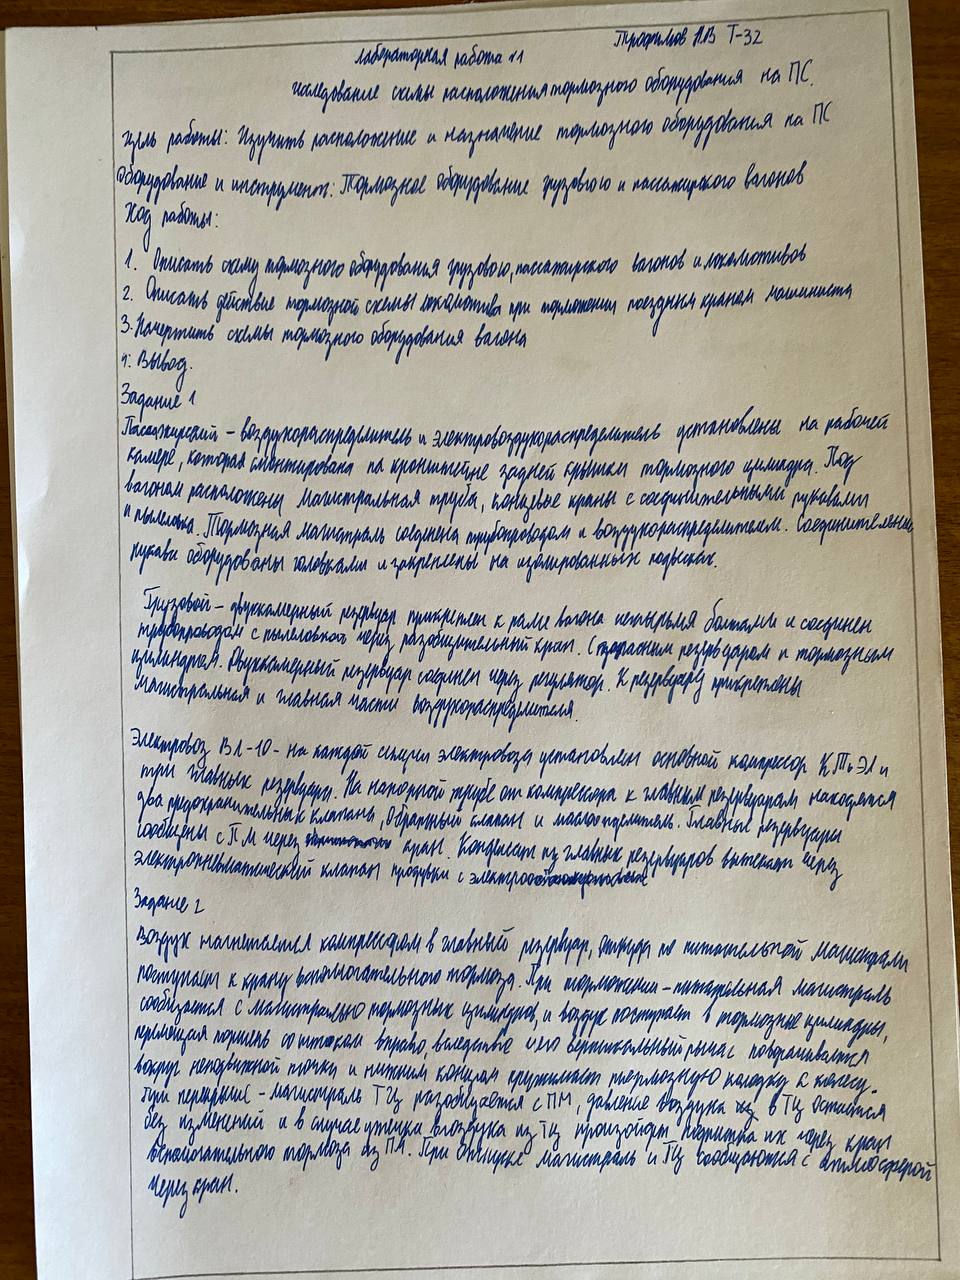 Трофимов Т-32
Лабораторная работа №1
исследование схемы расположения тормозного оборудования на ПС.
Цель работы: Изучить расположение и назначение тормозного оборудования на ПС
Оборудование и инструмент: Тормозное оборудование грузового и пассажирского вагонов
Ход работы:
1. Описать схему тормозного оборудования грузового, пассажирского вагонов и локомотивов
2. Описать действие тормозной схемы локомотива при торможении поездным краном машиниста
3. Начертить схемы тормозного оборудования вагона
4. Вывод.
Задание 1
Пассажирский – воздухораспределитель и электровоздухораспределитель установлены на рабочей
камере, которая смонтирована на кронштейне задней крышки тормозного цилиндра. Под
вагоном расположены магистральная труба, концевые краны с соединительными рукавами
и пылеловка. Тормозная магистраль соединена трубопроводом и воздухораспределителем. Соединительные
рукава оборудованы головками и закреплены на изолированных подвесках.
Грузовой – двухкамерный резервуар прикреплен к раме вагона четырьмя болтами и соединен
трубопроводом с пылеловкой через разобщительный кран. С запасным резервуаром и тормозным
цилиндрем. Двухкамерный резервуар соединен через регулятор. К резервуару прикреплены
магистральная и главная части воздухораспределителя.
Электровоз ВЛ-10- на каждой секции электровоза установлен основной компрессор и
три главных резервуара. На напорной трубе от компрессора к главным резервуарам находятся
два предохранительных клапана, обратный клапан и маслоотделитель. Главные резервуары
сообщены с ПМ через кран. Конденсат из главных резервуаров вытекает через
электропневматический клапан продувки с электро
Задание 2
Воздух нагнетается компрессором в главный резервуар, откуда по питательной магистрали
поступает к крану вспомогательного тормоза. При торможении – питательная магистраль
сообщается с магистралью тормозных цилиндров, и воздух поступает в тормозные цилиндры,
перемещая поршень со штоком вправо, вследствие чего вертикальный рычаг поворачивается
вокруг неподвижной точки и нижним концом прижимает тормозную колодку к колесу.
При перекрыше – магистраль ТЦ разобщается с ПМ, давление воздуха в ТЦ остается
без изменений и в случае утечки воздуха из ТЦ произойдет подпитка их через кран
вспомогательного тормоза из ПМ. При отпуске магистраль и ТЦ сообщаются с атмосферой
через кран.